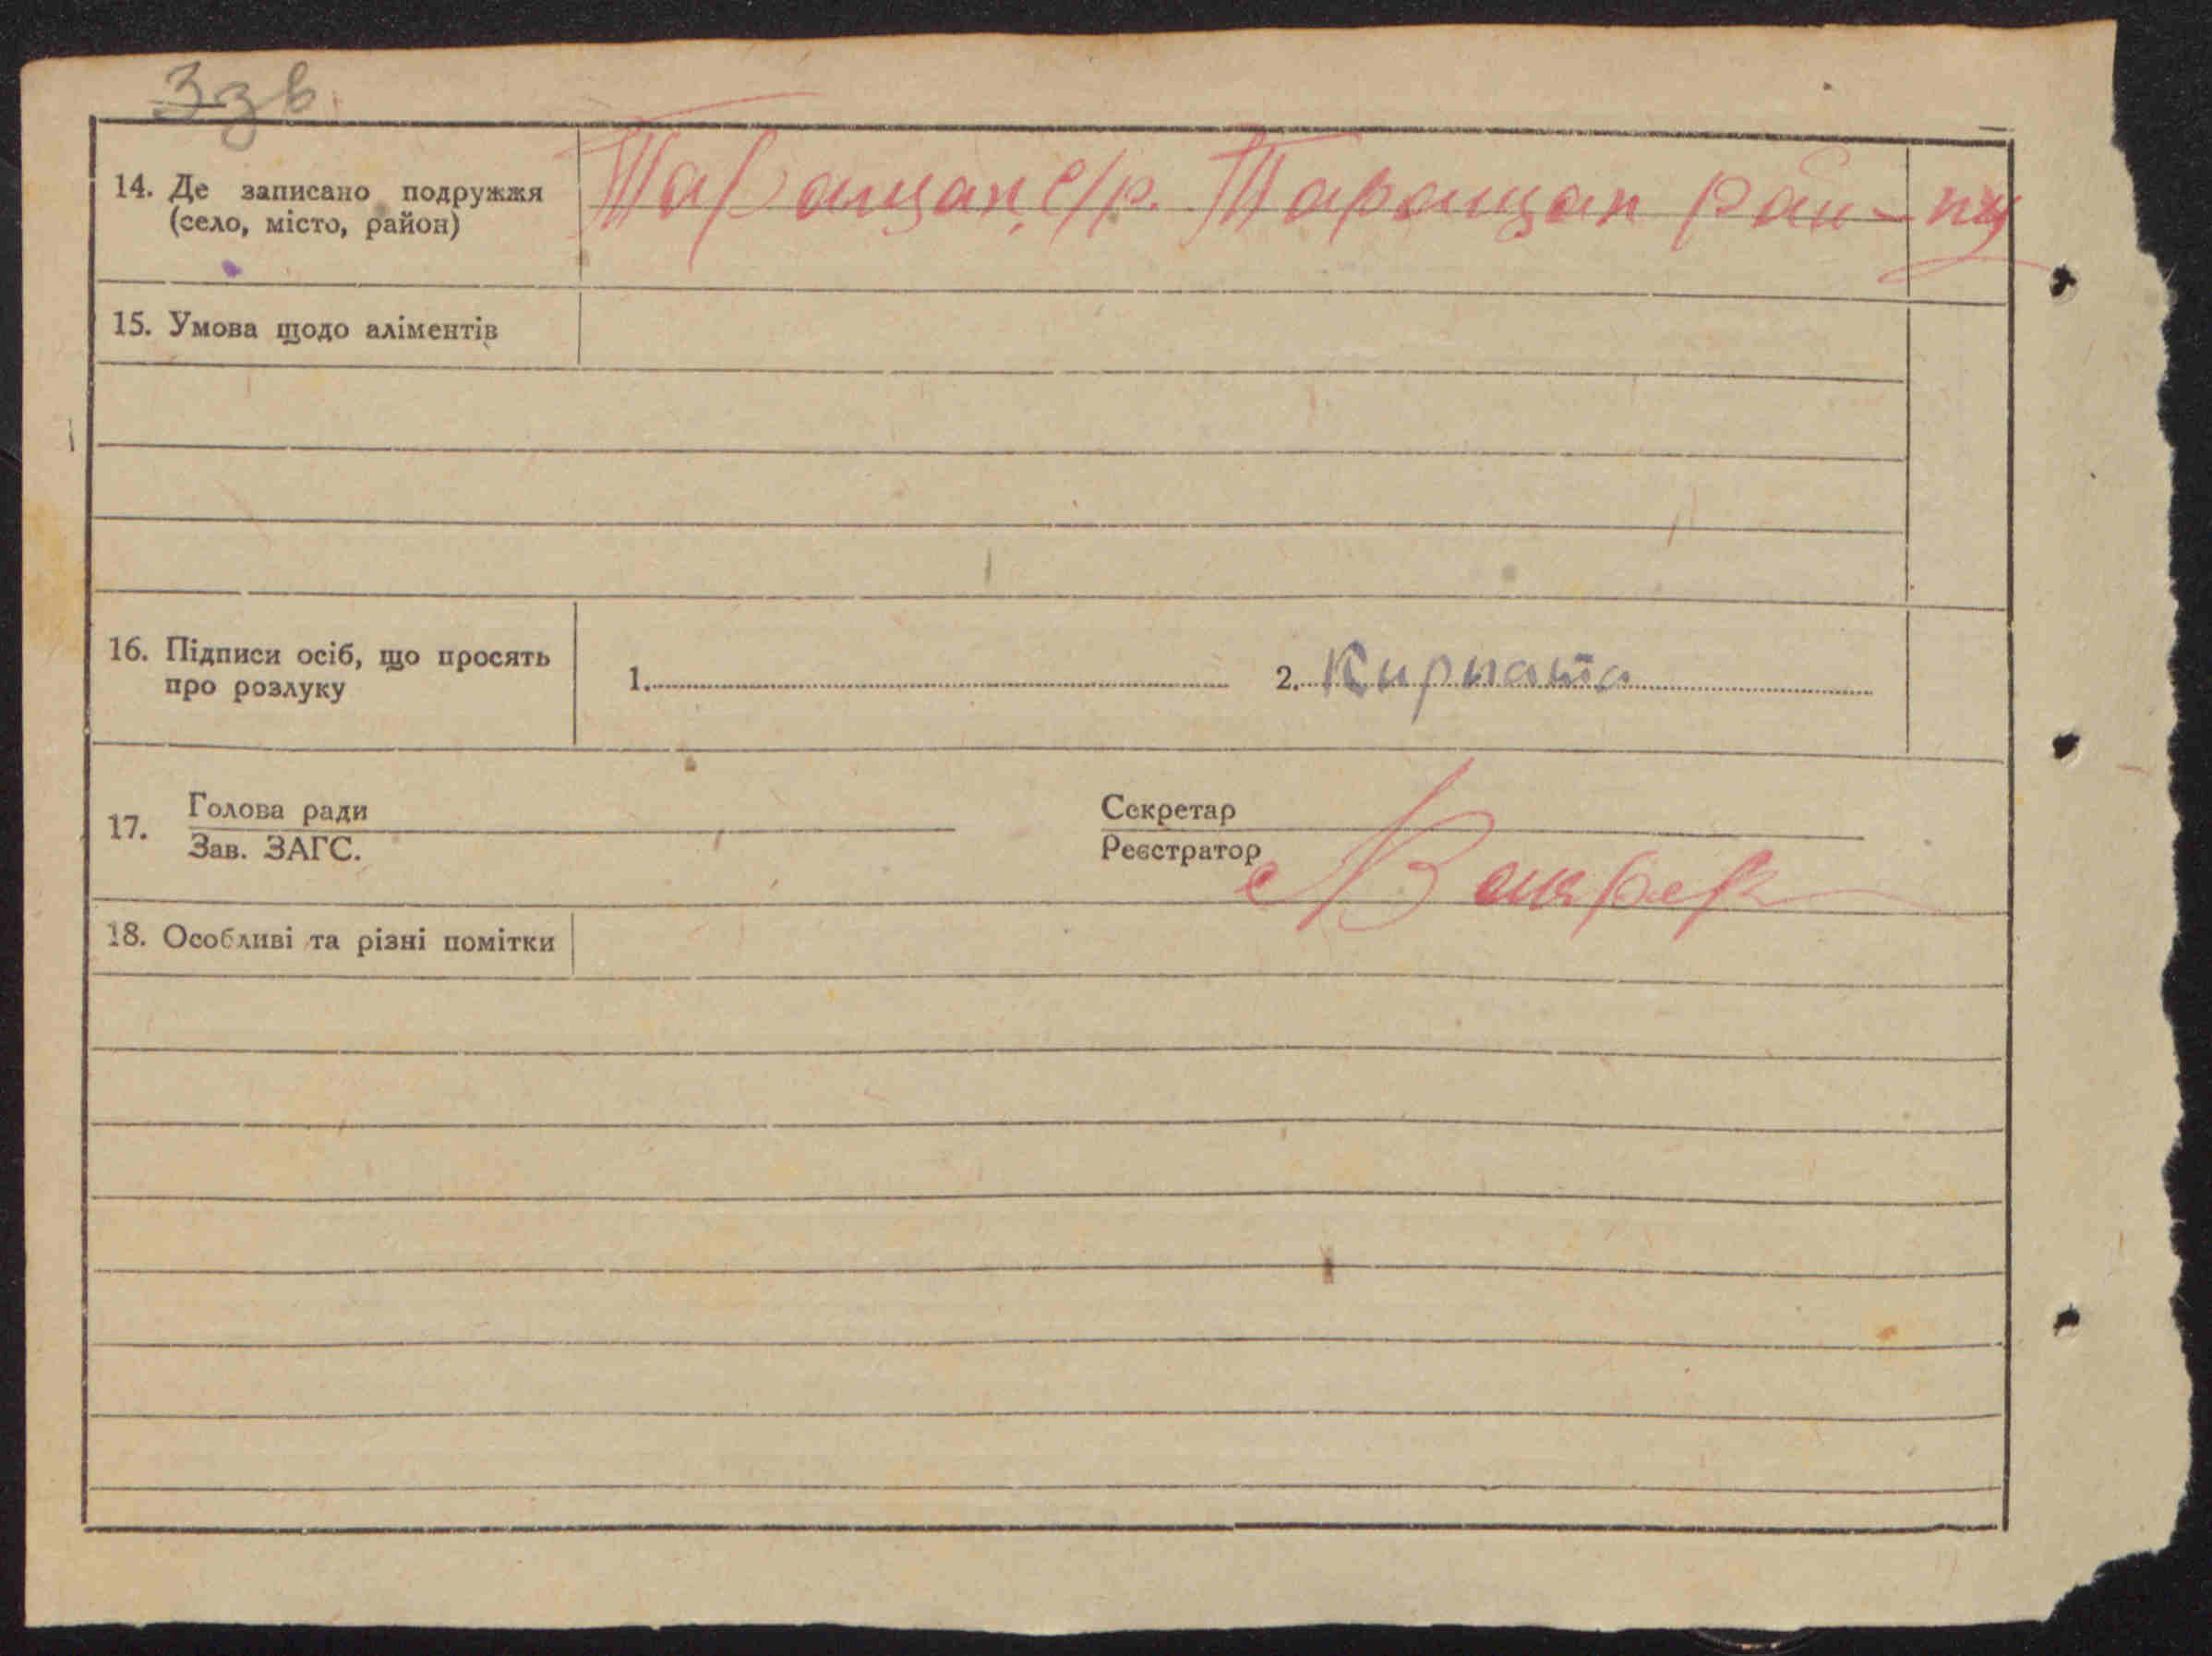 3зв
14. Де записано подружжя
(село, місто, район)
Таращан, с/р. Таращан рай-ну
15. Умова щодо аліментів
16. Підписи осіб, що просять
про розлуку
1.
2. Кирпата
17.
Голова ради
Зав. ЗАГС.
Секретар
Реєстратор
18. Особливі та різні помітки